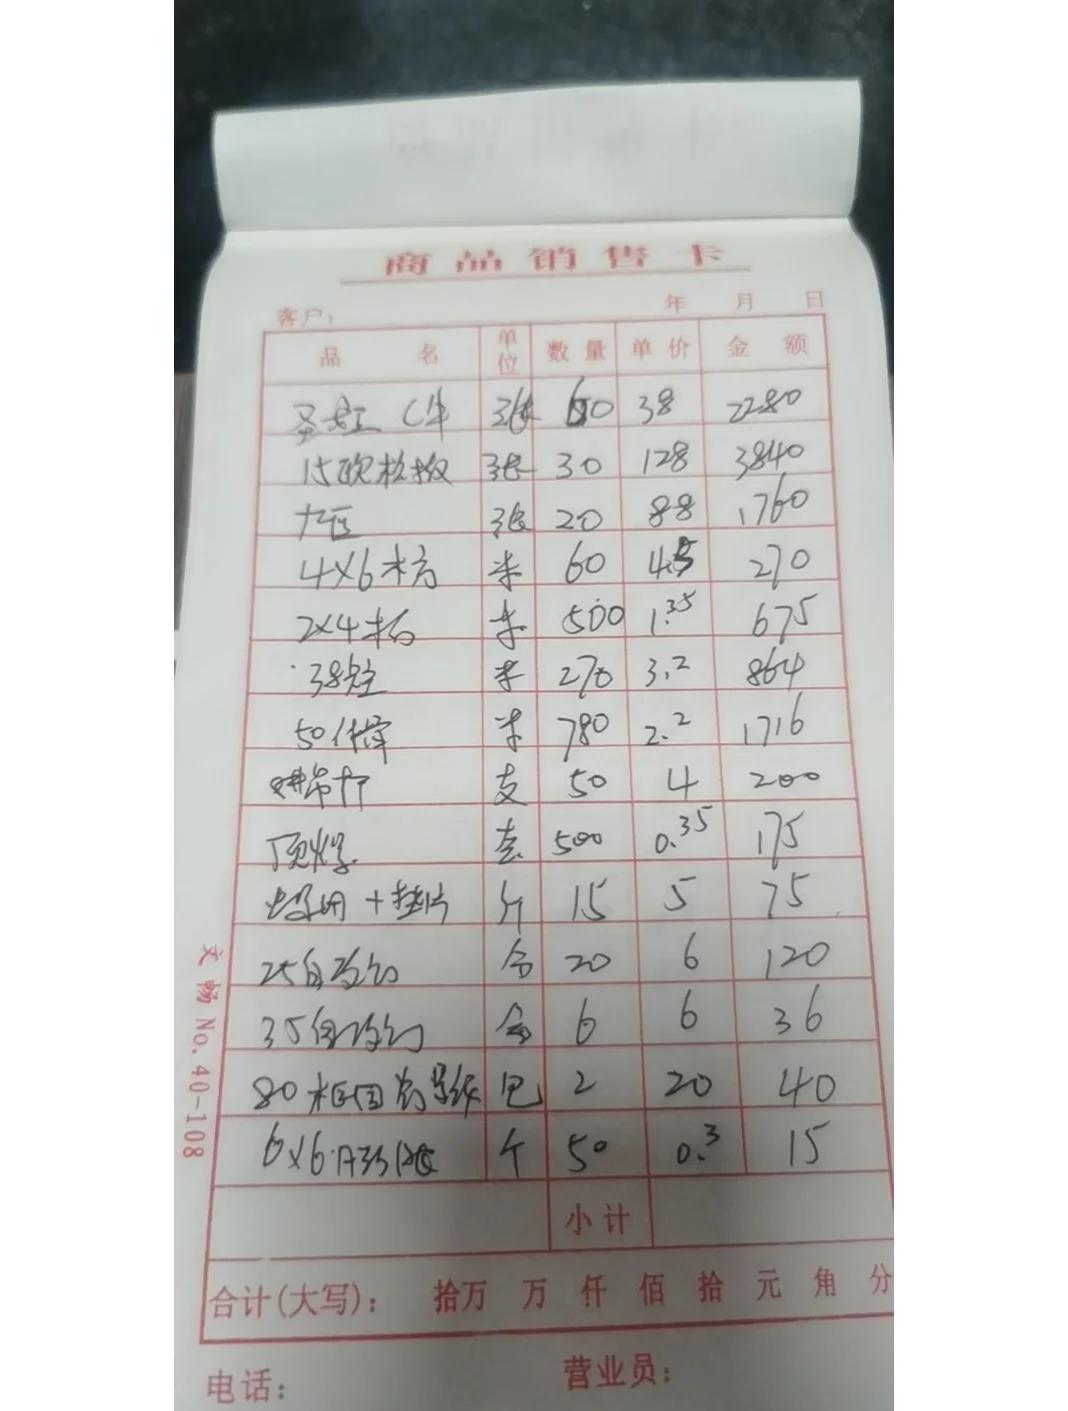 商品销售卡
客户： 年 月 日
品名 单位 数量 单价 金额
张 60 38 2280
15欧松板 张 30 128 3840
张 20 88 1760
4×6木方 米 60 4.5 270
2×4木方 米 500 1.35 675
38主 米 270 3.2 864
50付骨 米 780 2.2 1716
吊杆 支 50 4 200
顶爆 套 500 0.35 175
+垫片 斤 15 5 75
25自攻钉 合 20 6 120
35自攻钉 合 6 6 36
80 包 2 20 40
6×6 个 50 0.3 15
小计
合计(大写)： 拾万 万 仟 佰 拾 元 角 分
电话： 营业员：
文畅 No.40-108